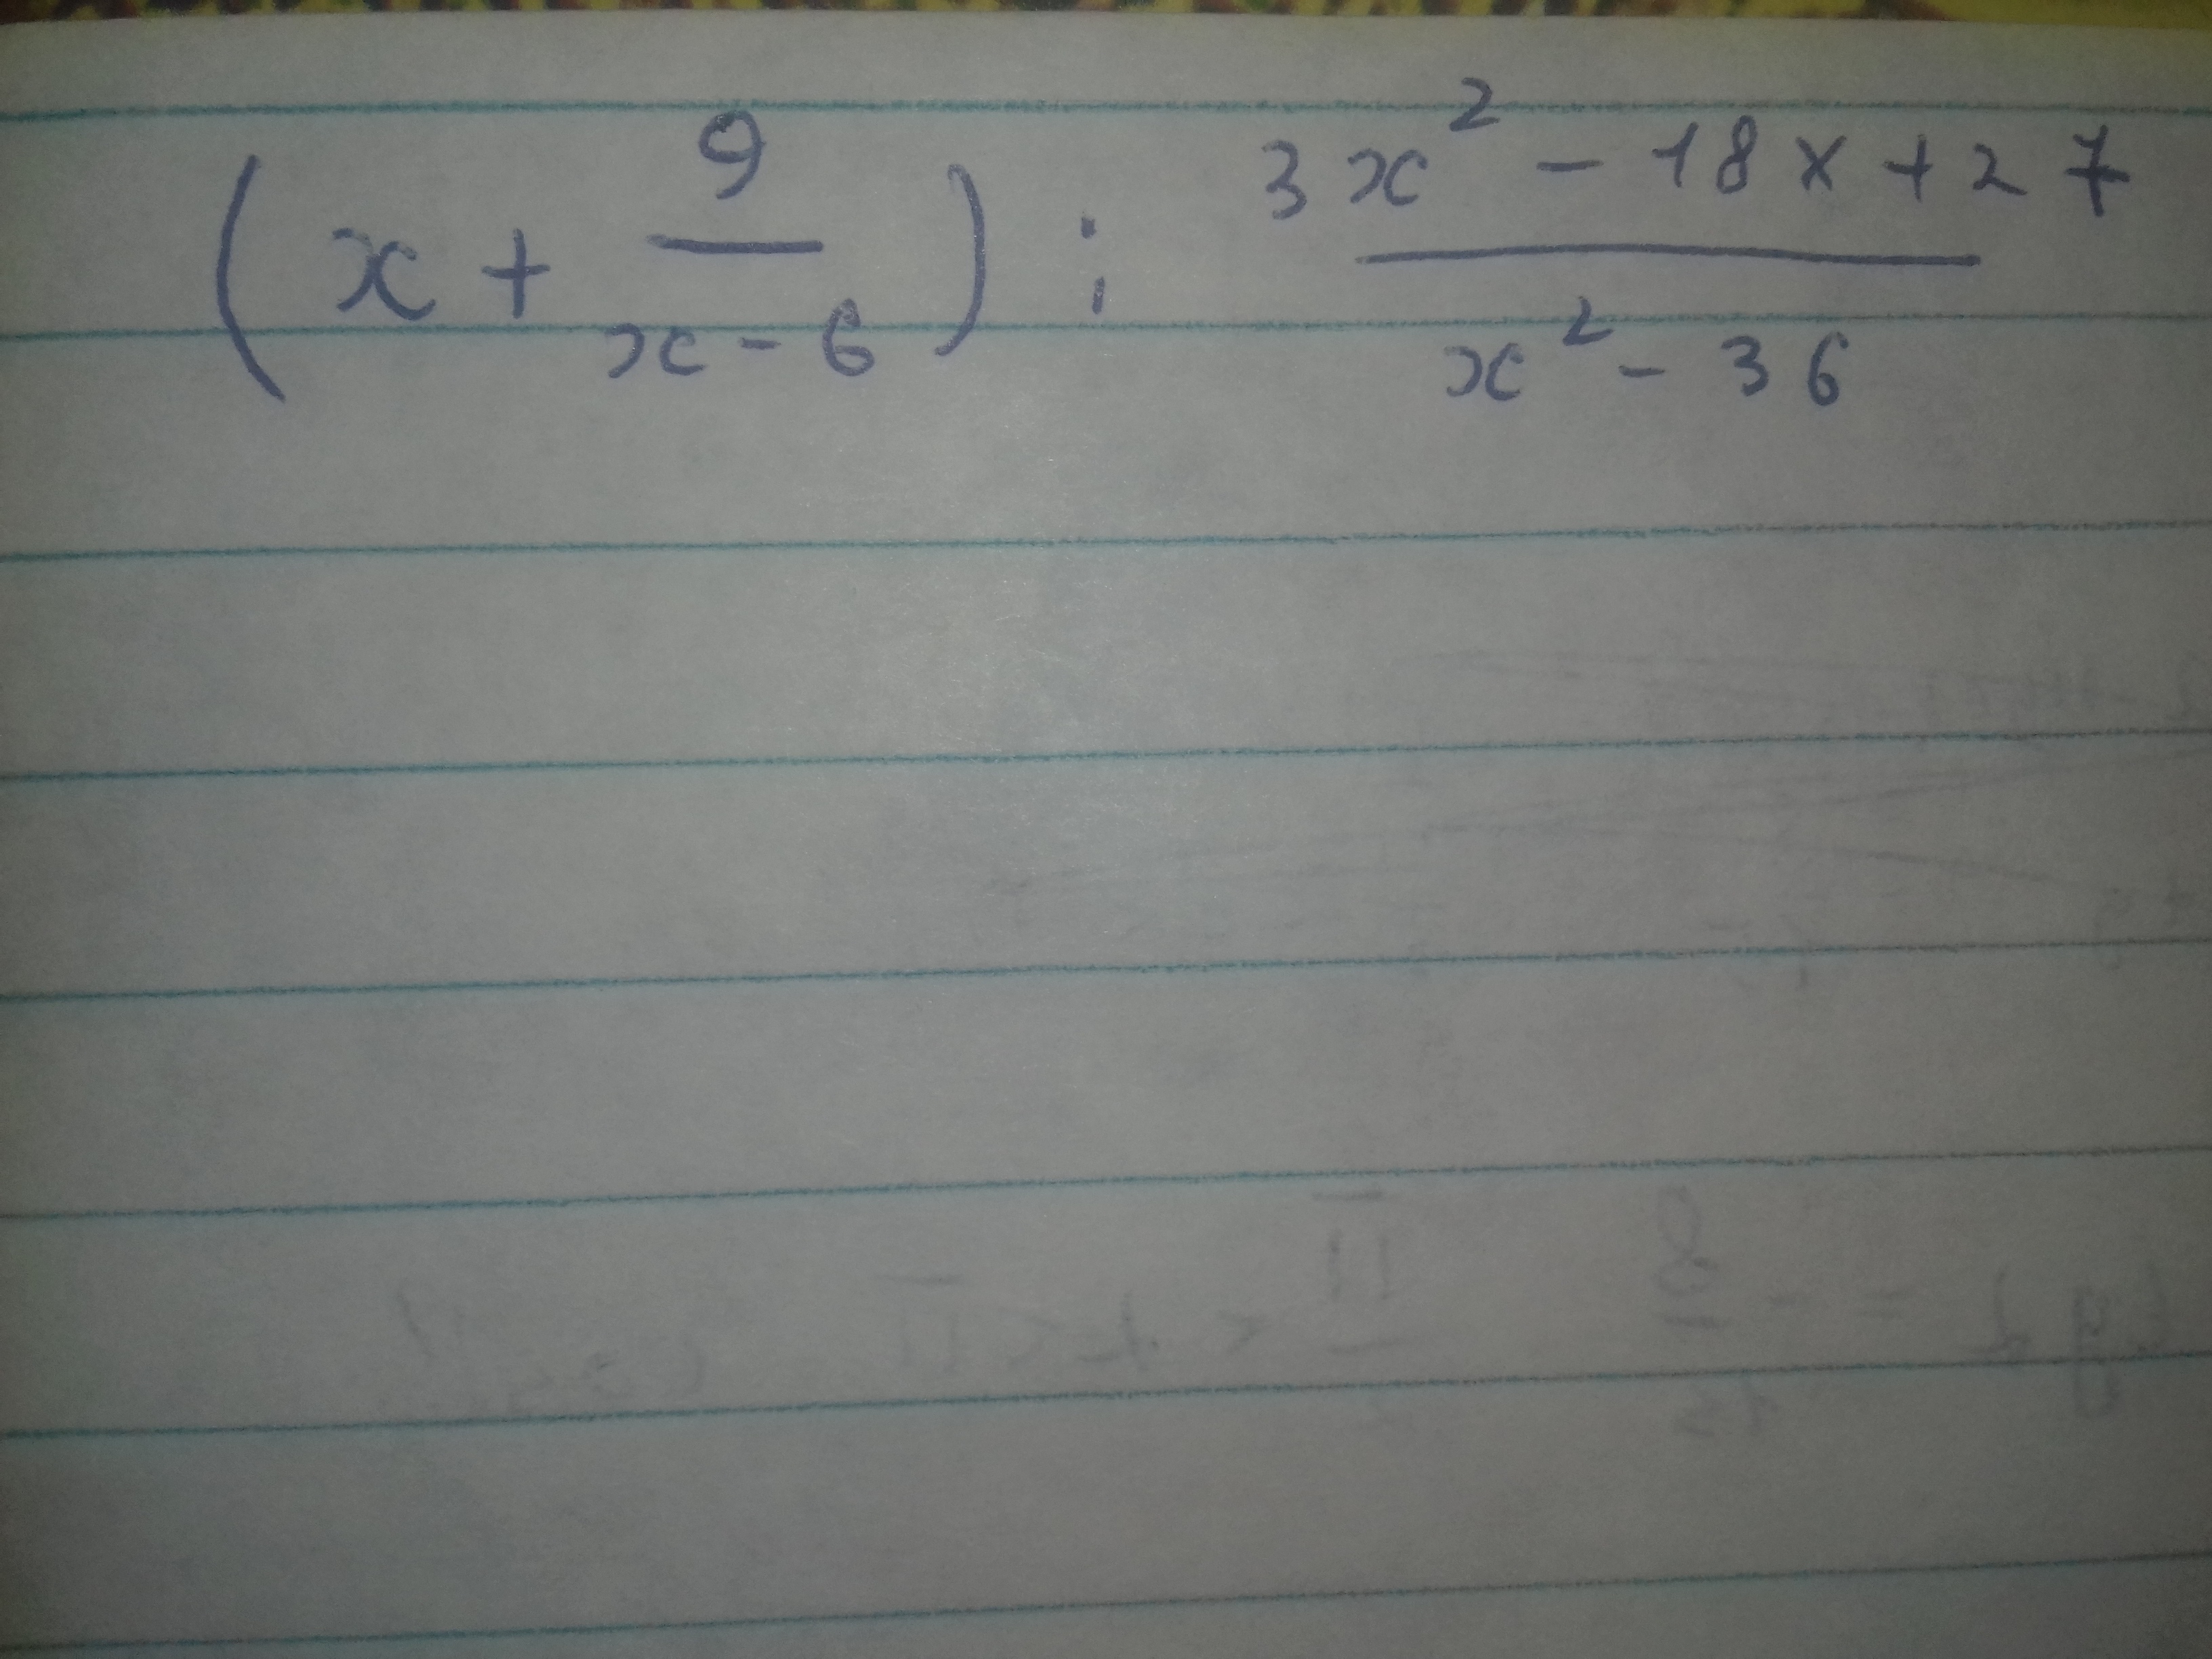 (x + 9/(x - 6)) : (3x² - 18x + 27)/(x² - 36)